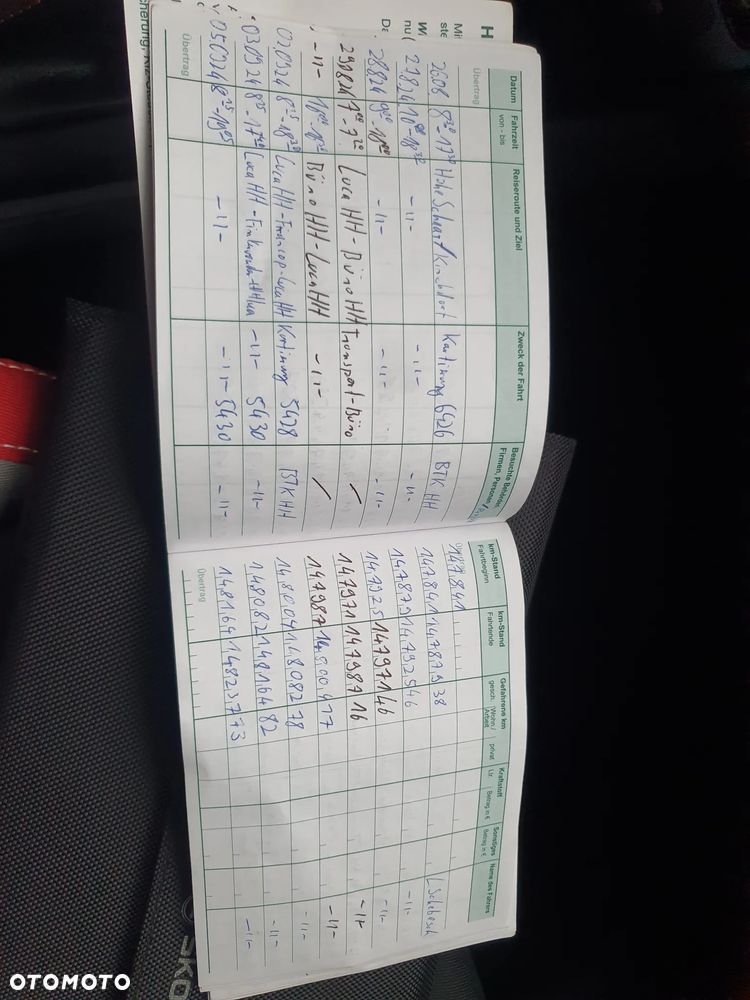 Datum Fahrzeit von - bis Reiseroute und Ziel Zweck der Fahrt Besuchte Behörden, Firmen, Personen
Übertrag
2608 8³⁰-17³⁰ Hohe Schaar/Kirchdorf Kartierung 6426 BTK HH
27824 10⁰⁰-18³² -"- -"- -"-
28824 9⁰⁰-18⁰⁰ -"- -"- -"-
290824 7⁰⁰-7²⁰ Luca HH-Büro HH Transport-Büro /
-"- Büro HH-Luca HH -"- /
020924 8¹⁵-18³⁰ Luca HH-Francop-Luca HH Kartierung 5428 BTK HH
030924 8²⁵-17⁴⁰ Luca HH- -"- 5430 -"-
050924 8²⁵ -"- -"- 5430 -"-
Übertrag
km-Stand Fahrtbeginn km-Stand Fahrtende Gefahrene km gesch. Wohn-/Arbeit privat Kraftstoff Ltr. Betrag in € Sonstiges Betrag in € Name des Fahrers
147841
147841 147879 38
147879 147925 46 -"-
147925 147971 46 -"-
147971 147987 16 -"-
147987 148004 17 -"-
148004 148082 78 -"-
148082 148164 82 -"-
148164 148237 73 -"-
Übertrag
OTOMOTO
ŠKO